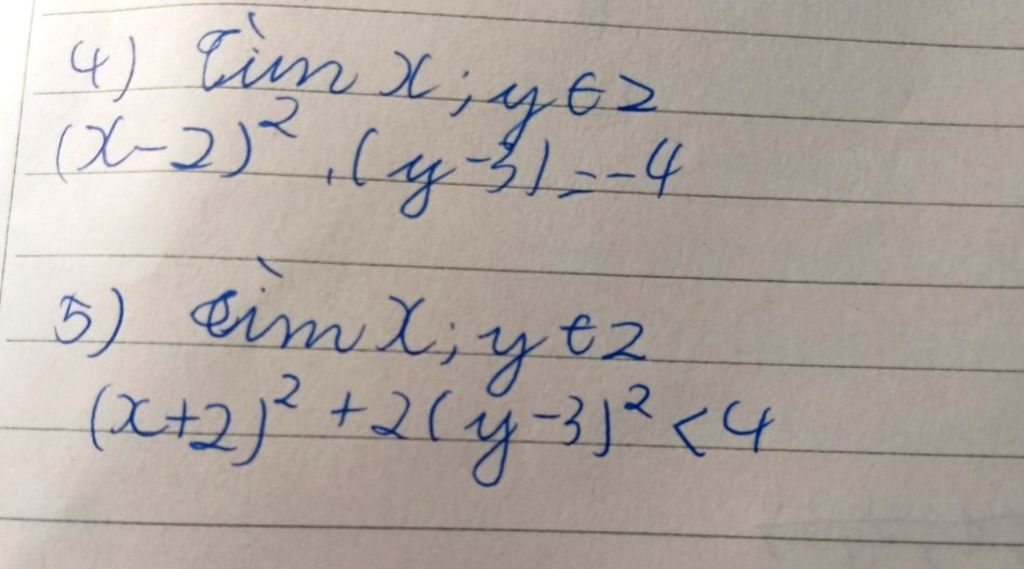 4) Tìm x; y ∈ Z
(x-2)² . (y-3) = -4
5) Tìm x; y ∈ Z
(x+2)² + 2(y-3)² < 4